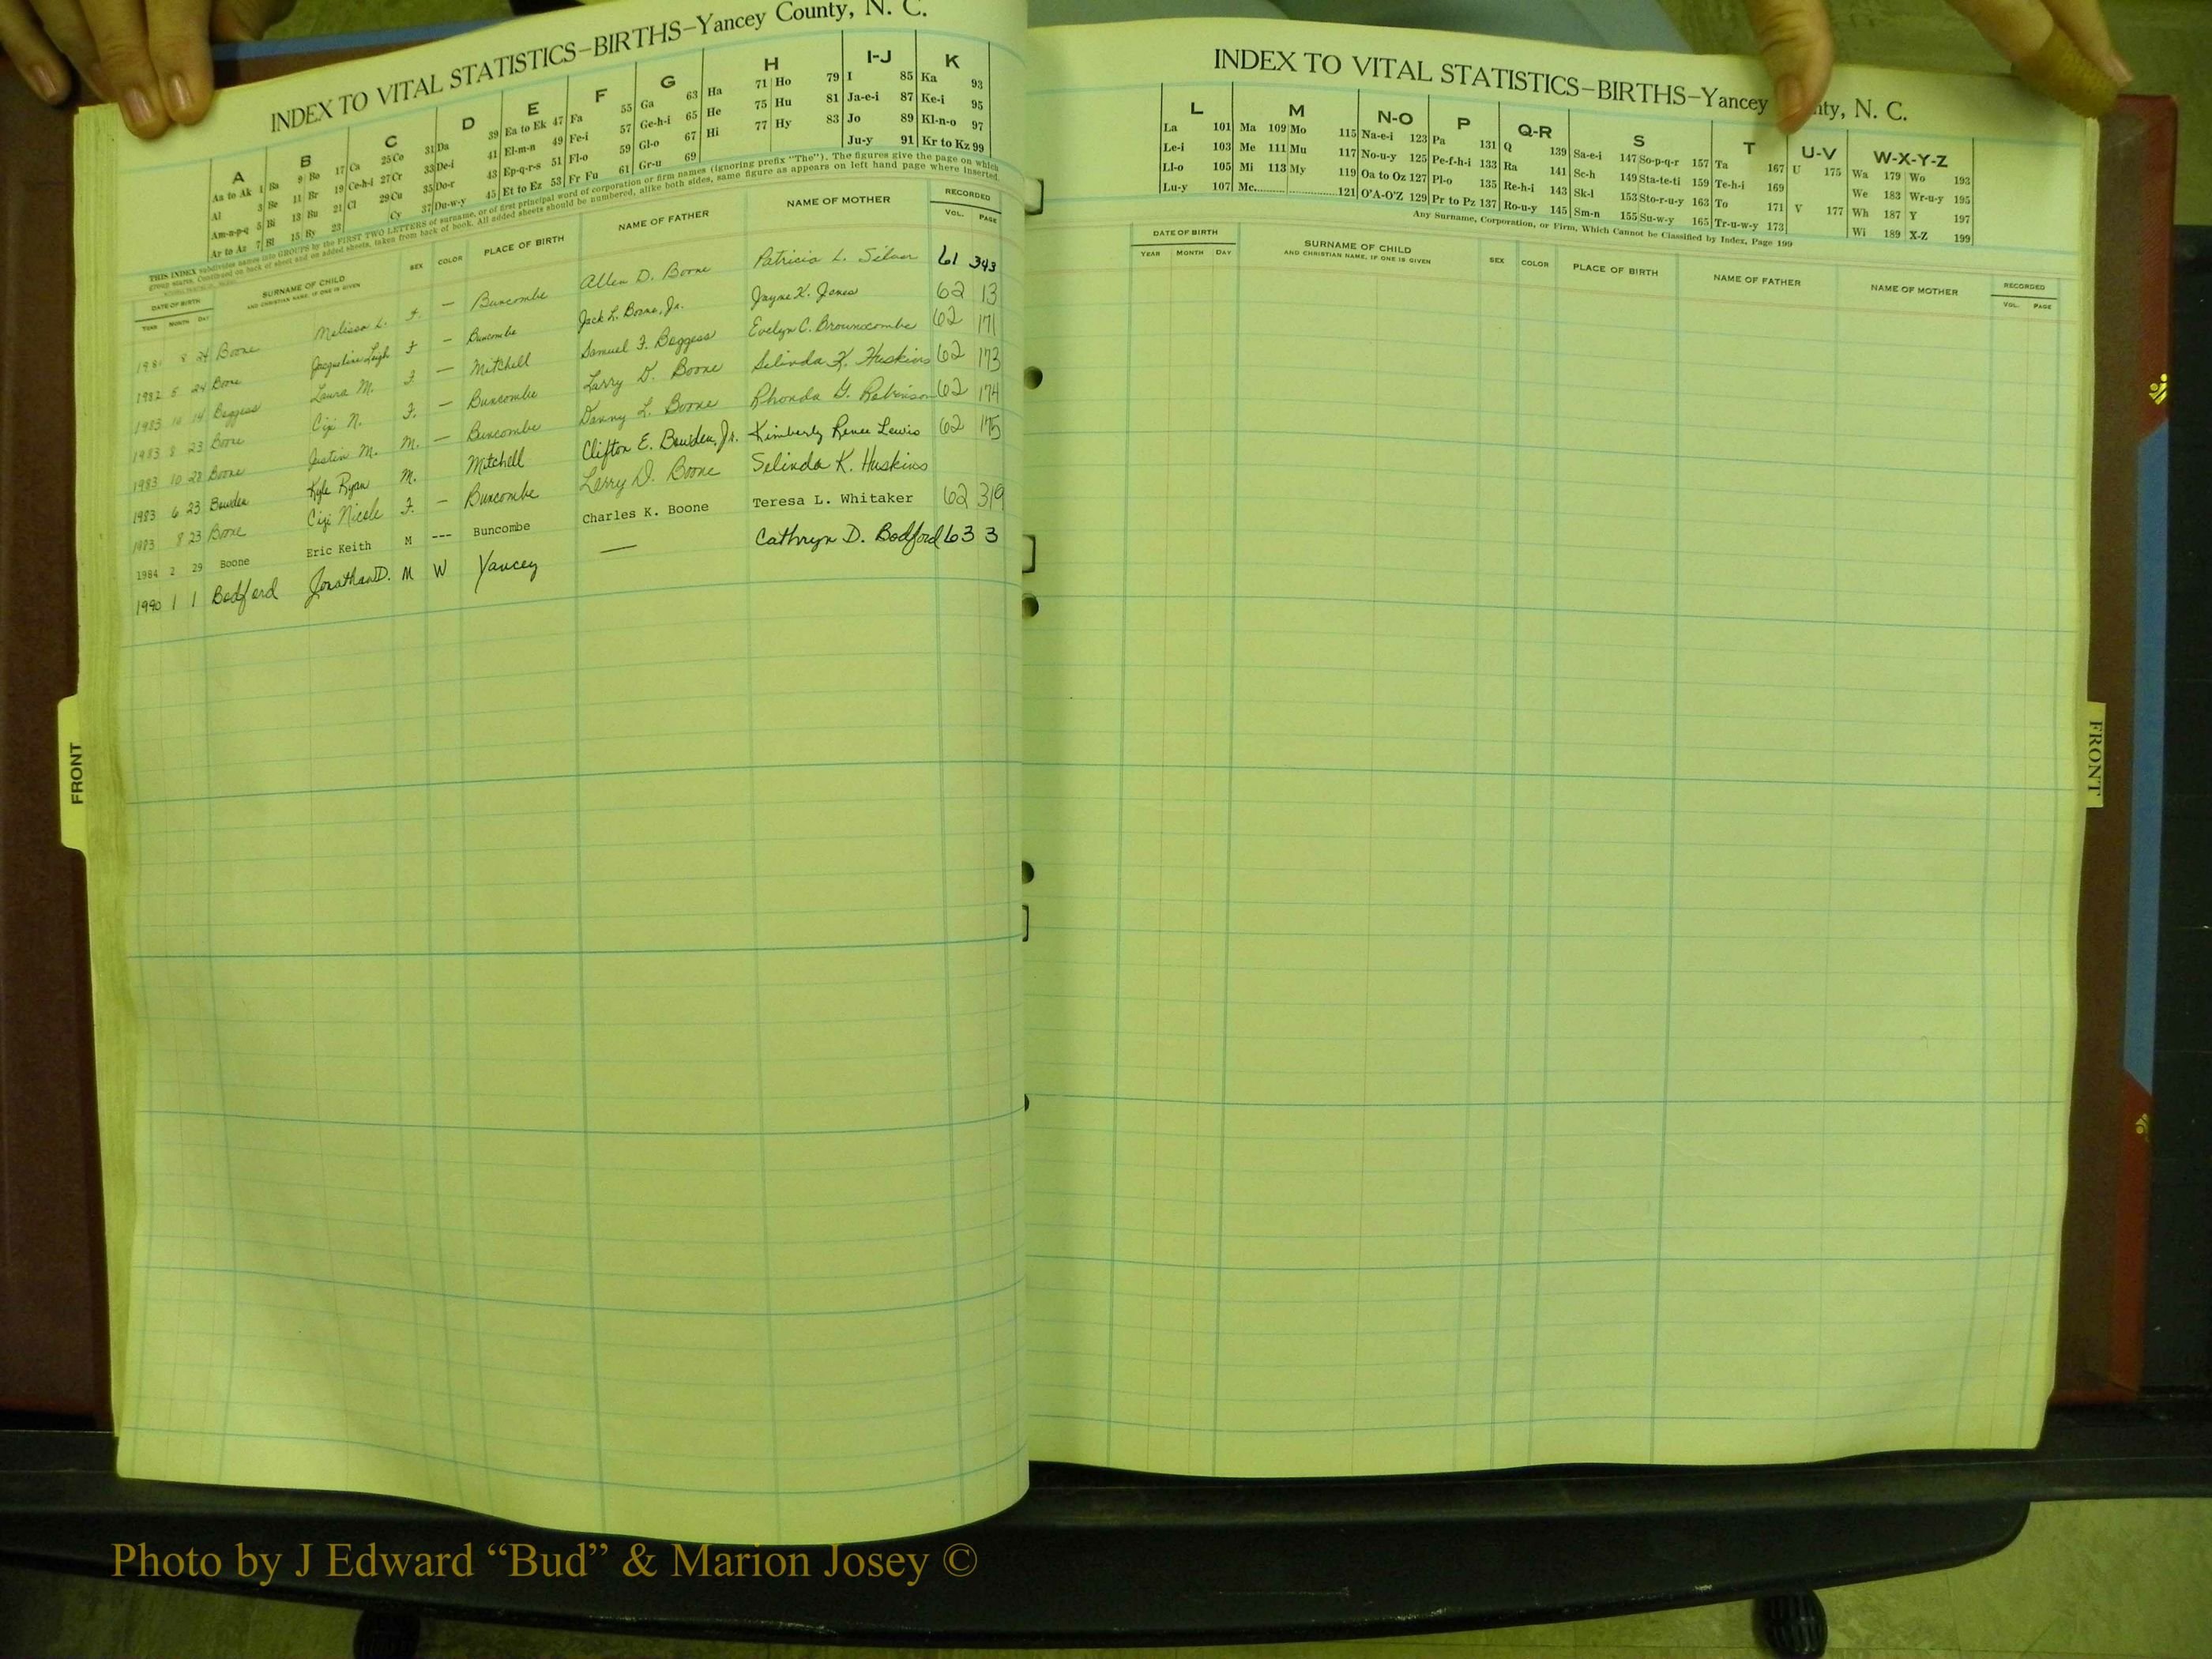 INDEX TO VITAL STATISTICS–BIRTHS–Yancey County, N. C.
A B C D E F G H I-J K
Aa to Ak 1 Ba 9 Bo 17 Ca 25 Co 31 Da 39 Ea to Ek 47 Fa 55 Ga 63 Ha 71 Ho 79 I 85 Ka 93
Al 3 Be 11 Br 19 Ce-h-i 27 Cr 33 De-i 41 El-m-n 49 Fe-i 57 Ge-h-i 65 He 75 Hu 81 Ja-e-i 87 Ke-i 95
Am-n-p-q 5 Bi 13 Bu 21 Cl 29 Cu 35 Do-r 43 Ep-q-r-s 51 Fl-o 59 Gl-o 67 Hi 77 Hy 83 Jo 89 Kl-n-o 97
Ar to Az 7 Bl 15 By 23 Cy 37 Du-w-y 45 Et to Ez 53 Fr Fu 61 Gr-u 69 Ju-y 91 Kr to Kz 99
THIS INDEX subdivides names into GROUPS by the FIRST TWO LETTERS of surname, or of first principal word of corporation or firm names (ignoring prefix "The"). The figures give the page on which
group starts. Continued on back of sheet and on added sheets, taken from back of book. All added sheets should be numbered, alike both sides, same figure as appears on left hand page where inserted.
DATE OF BIRTH SURNAME OF CHILD SEX COLOR PLACE OF BIRTH NAME OF FATHER NAME OF MOTHER RECORDED
YEAR MONTH DAY AND CHRISTIAN NAME, IF ONE IS GIVEN VOL. PAGE
1981 8 24 Boone Melissa L. F. — Buncombe Allen D. Boone Patricia L. Silver 61 343
1982 5 24 Boone Jacqueline Leigh F — Buncombe Jack L. Boone, Jr. Jayne K. Jones 62 13
1983 10 14 Boggess Laura M. F. — Mitchell Samuel F. Boggess Evelyn C. Brownscombe 62 171
1983 8 23 Boone Cizi N. F. — Buncombe Larry D. Boone Selinda K. Huskins 62 173
1983 10 28 Boone Justin M. M. — Buncombe Danny L. Boone Rhonda G. Robinson 62 174
1983 6 23 Bowden Kyle Ryan M. Mitchell Clifton E. Bowden, Jr. Kimberly Renee Lewis 62 175
1983 8 23 Boone Cizi Nicole F. — Buncombe Larry D. Boone Selinda K. Huskins
1984 2 29 Boone Eric Keith M --- Buncombe Charles K. Boone Teresa L. Whitaker 62 319
1990 1 1 Bodford Jonathan D. M W Yancey — Cathryn D. Bodford 63 3
FRONT
INDEX TO VITAL STATISTICS–BIRTHS–Yancey nty, N. C.
L M N-O P Q-R S T U-V W-X-Y-Z
La 101 Ma 109 Mo 115 Na-e-i 123 Pa 131 Q 139 Sa-e-i 147 So-p-q-r 157 Ta 167 U 175 Wa 179 Wo 193
Le-i 103 Me 111 Mu 117 No-u-y 125 Pe-f-h-i 133 Ra 141 Sc-h 149 Sta-te-ti 159 Te-h-i 169 We 183 Wr-u-y 195
Ll-o 105 Mi 113 My 119 Oa to Oz 127 Pl-o 135 Re-h-i 143 Sk-l 153 Sto-r-u-y 163 To 171 V 177 Wh 187 Y 197
Lu-y 107 Mc 121 O'A-O'Z 129 Pr to Pz 137 Ro-u-y 145 Sm-n 155 Su-w-y 165 Tr-u-w-y 173 Wi 189 X-Z 199
Any Surname, Corporation, or Firm, Which Cannot be Classified by Index, Page 199
DATE OF BIRTH SURNAME OF CHILD SEX COLOR PLACE OF BIRTH NAME OF FATHER NAME OF MOTHER RECORDED
YEAR MONTH DAY AND CHRISTIAN NAME, IF ONE IS GIVEN VOL. PAGE
FRONT
Photo by J Edward “Bud” & Marion Josey ©